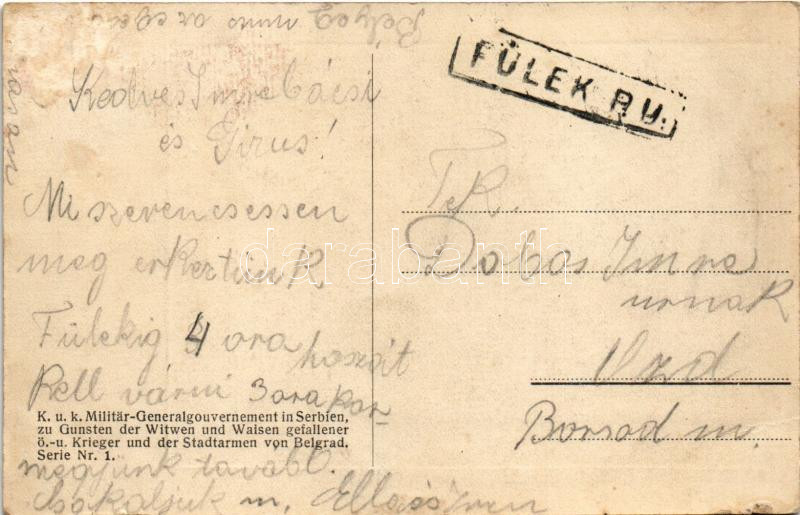 Bélyeg nincs az egész
FÜLEK P.U.
Kedves Imre bácsi
és Girus!
Mi szerencsessen
meg erkeztünk
Fülekig 4 ora hoszát
kell várni 3 ora kor
megyünk tovább.
Csokoljuk m.
Tek.
Dobos Imre
urnak
Ozd
Borsod m.
K. u. k. Militär-Generalgouvernement in Serbien,
zu Gunsten der Witwen und Waisen gefallener
ö.-u. Krieger und der Stadtarmen von Belgrad.
Serie Nr. 1.
darabanth.com